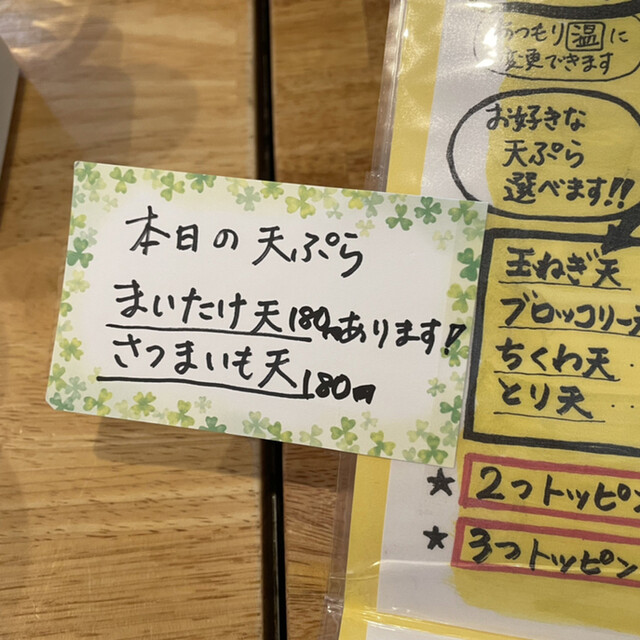 本日の天ぷら
まいたけ天180円あります!
さつまいも天180円
温に
変更できます
お好きな
天ぷら
選べます!!
玉ねぎ天
ブロッコリー天
ちくわ天‥
とり天‥
★2つトッピン
★3つトッピン